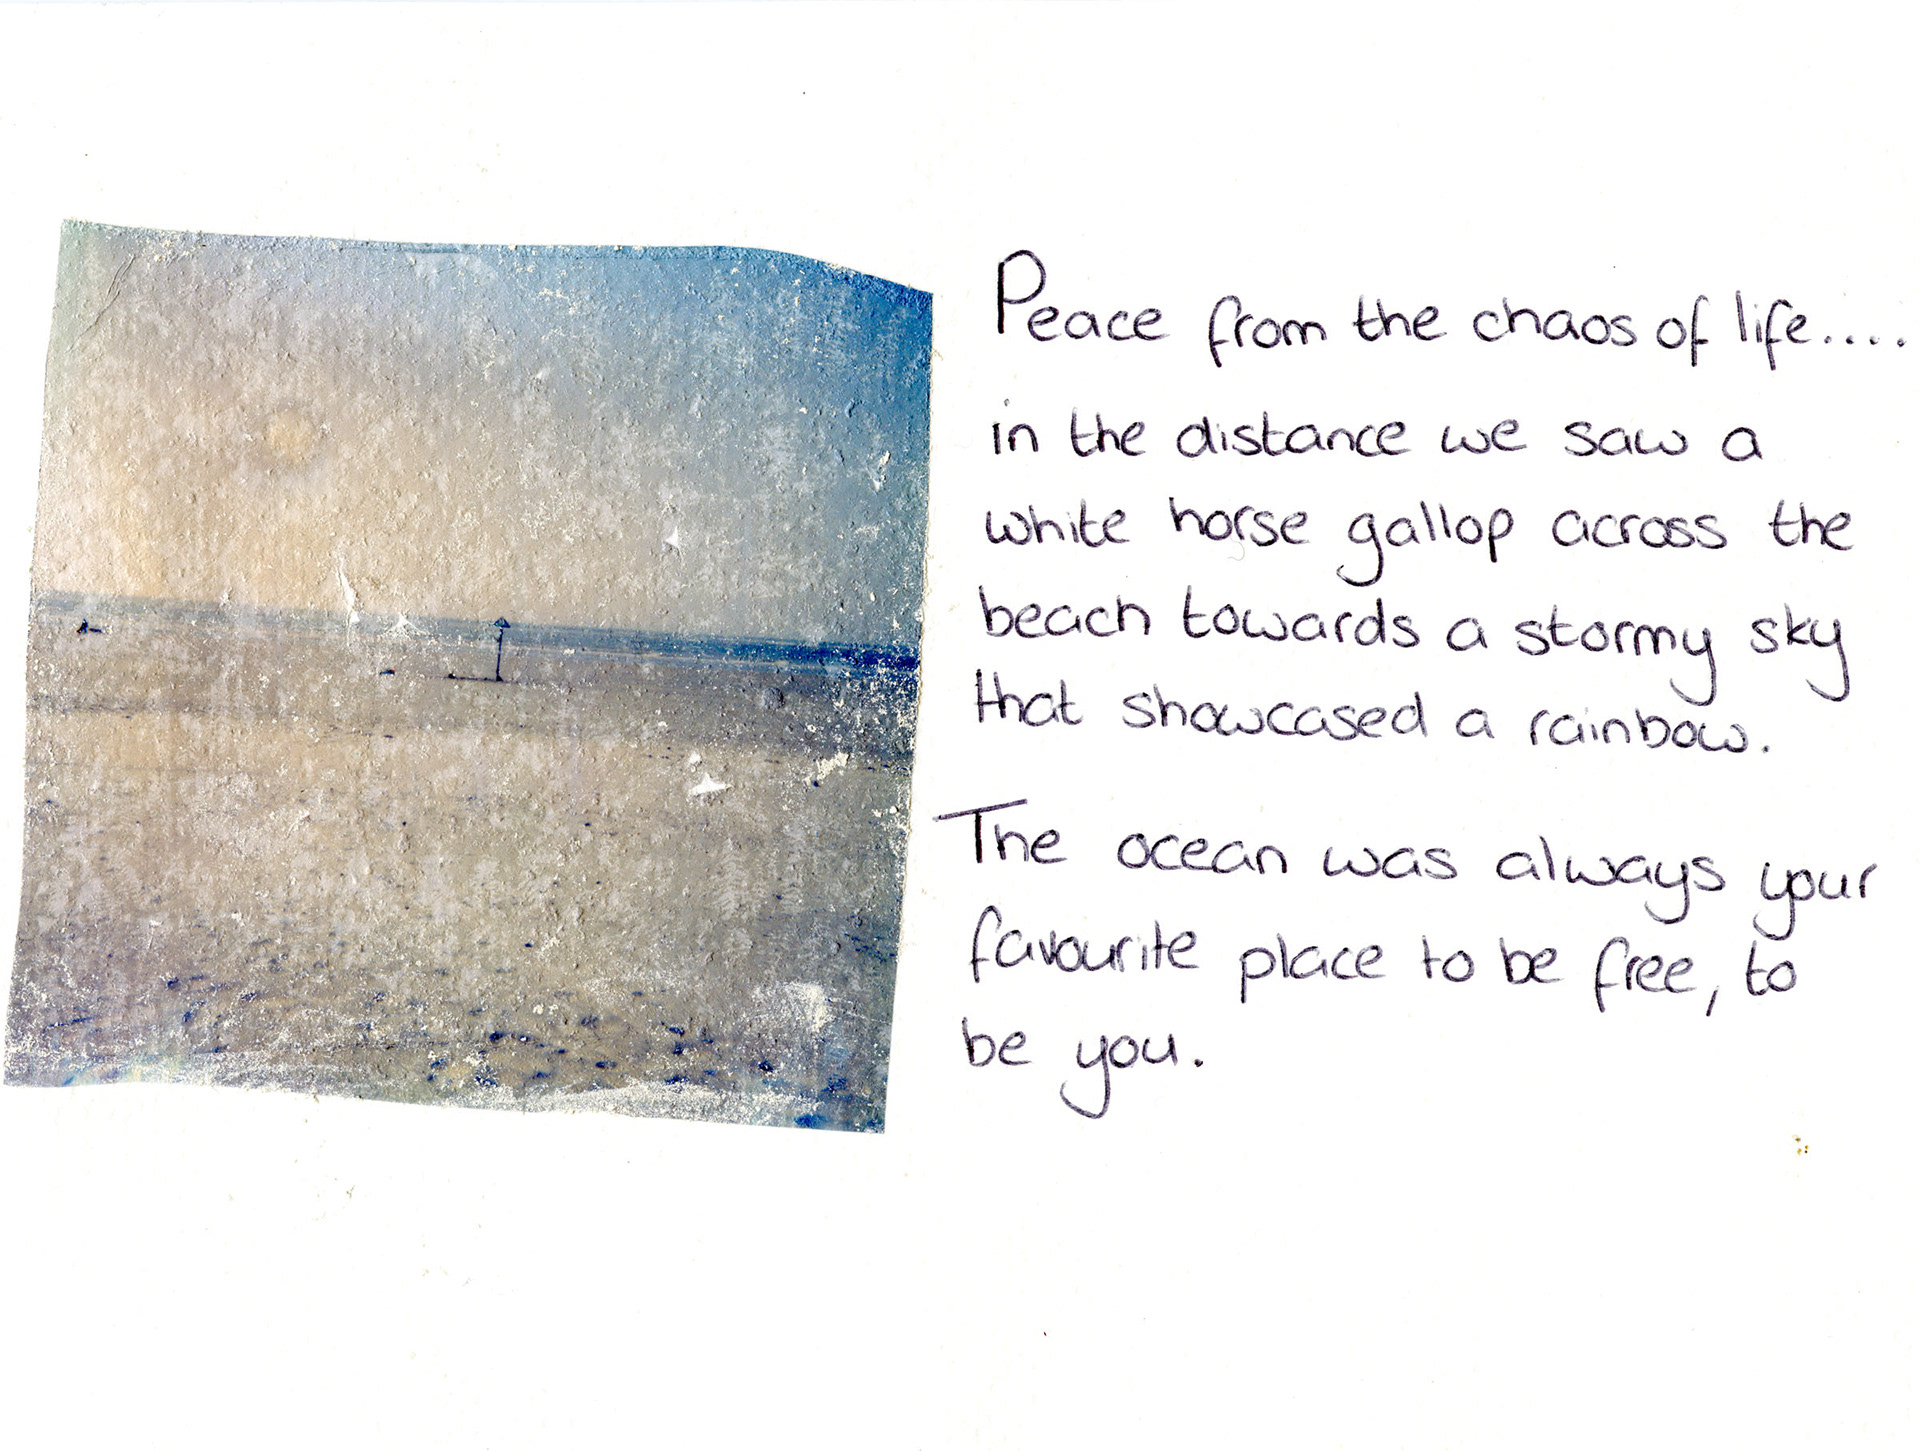 Peace from the chaos of life....
in the distance we saw a
white horse gallop across the
beach towards a stormy sky
that showcased a rainbow.
The ocean was always your
favourite place to be free, to
be you.